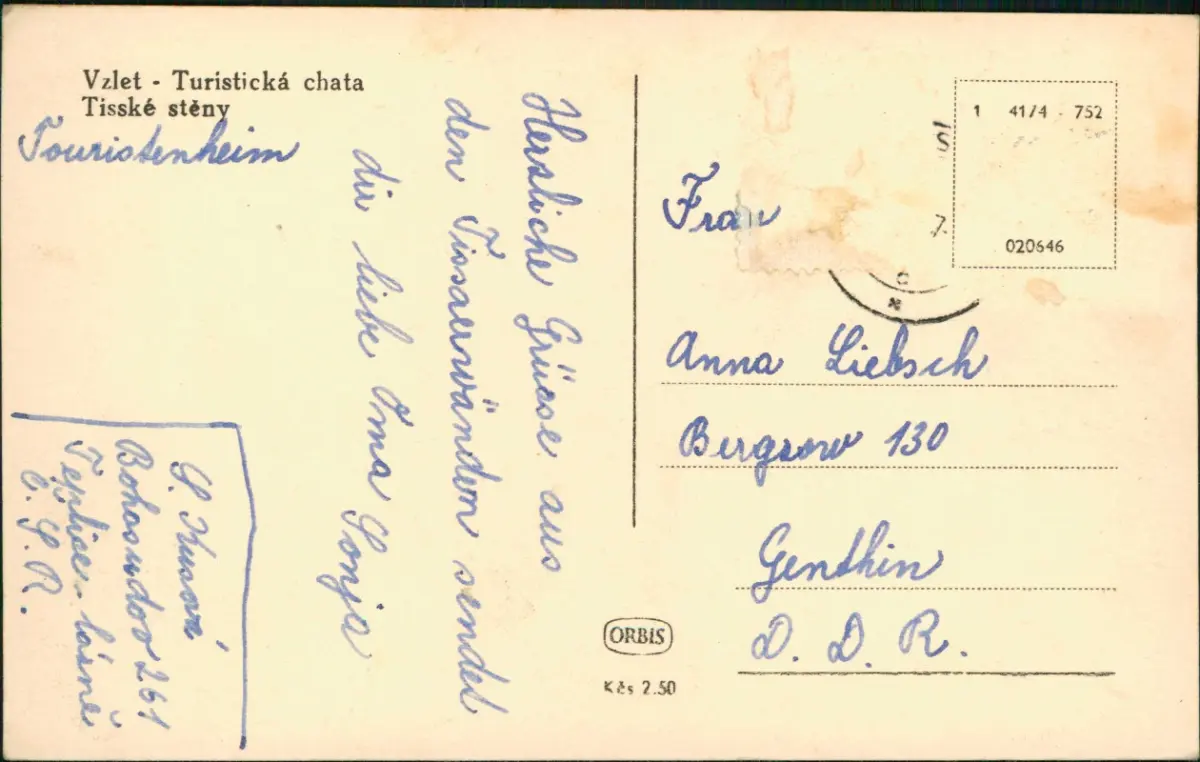 Vzlet - Turistická chata
Tisské stěny
Touristenheim
Hersliche Grüese aus
den Tissaerwänden sendet
dir liebe Oma Sonja
S. Husová
Bohosudov 261
Teplice - lásně
Č. S. R.
1 41/4 - 752
020646
Frau
Anna Liebsch
Bergzow 130
Genthin
D. D. R.
ORBIS
Kčs 2.50